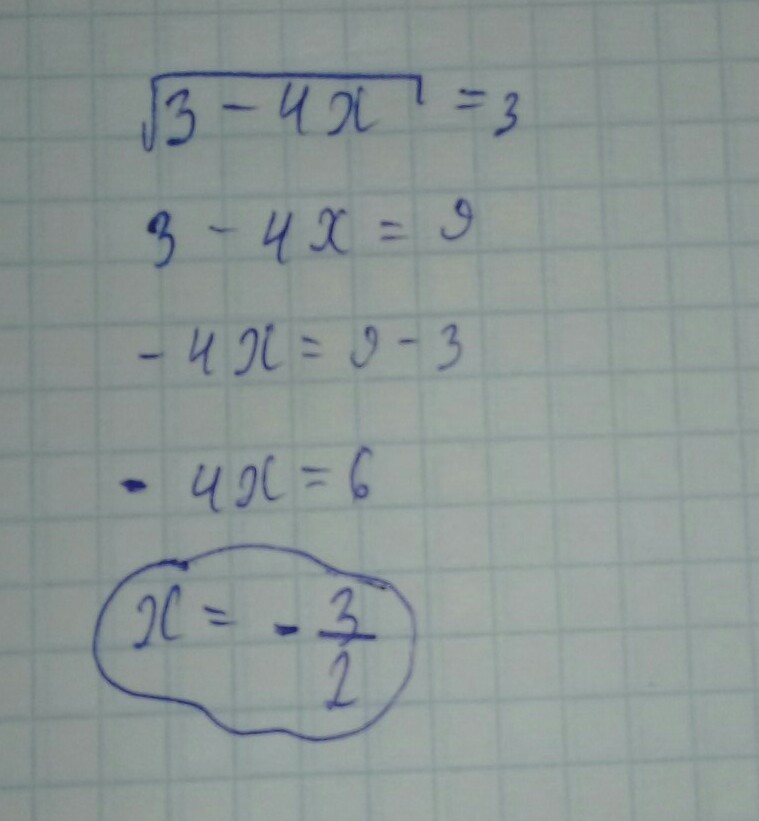 √3 - 4x = 3
3 - 4x = 9
- 4x = 9 - 3
- 4x = 6
x = - 3/2